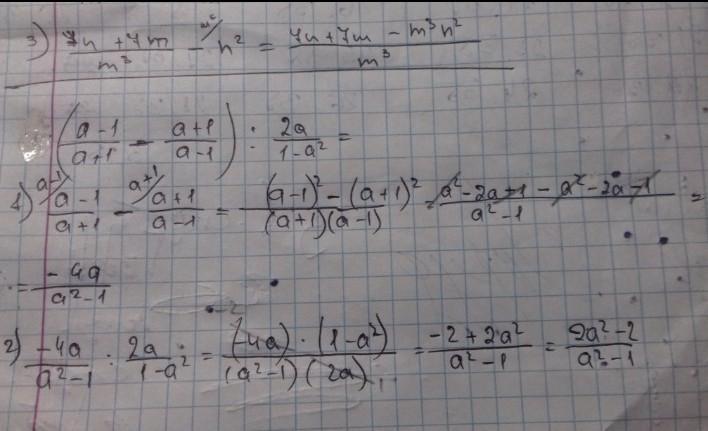 3) (7n + 7m)/m³ - n² = (7n + 7m - m³n²)/m³
((a-1)/(a+1) - (a+1)/(a-1)) : 2a/(1-a²) =
1) ᵃ⁻¹/ (a-1)/(a+1) - ᵃ⁺¹/ (a+1)/(a-1) = ((a-1)² - (a+1)²)/((a+1)(a-1)) = (a² - 2a + 1 - a² - 2a - 1)/(a² - 1) =
= -4a/(a²-1)
2) -4a/(a²-1) : 2a/(1-a²) = ((-4a) · (1-a²))/((a²-1)(2a)) = (-2 + 2a²)/(a²-1) = (2a² - 2)/(a² - 1)